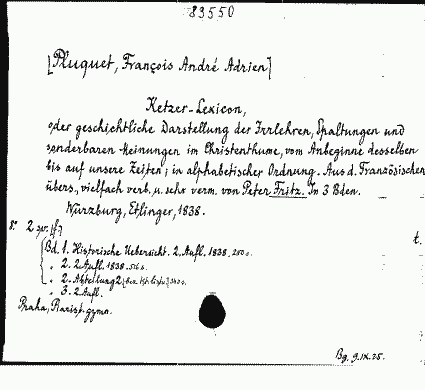 83550
[Pluquet, François André Adrien]
Ketzer-Lexicon,
oder geschichtliche Darstellung der Irrlehren, Spaltungen und
sonderbaren Meinungen im Christenthume, vom Anbeginne desselben
bis auf unsere Zeiten; in alphabetischer Ordnung. Aus d. Französischen
übers., vielfach verb. u. sehr verm. von Peter Fritz. In 3 Bden.
Würzburg, Etlinger, 1838.
8° 2
Bd. 1. Historische Uebersicht. 2. Aufl. 1838.
„ 2. 2 Aufl. 1838. 516 s.
„ 2. Abteilung 2
„ 3. 2. Aufl.
Praha, Piarist. gymn.
t.
Bg. 9.IX.25.